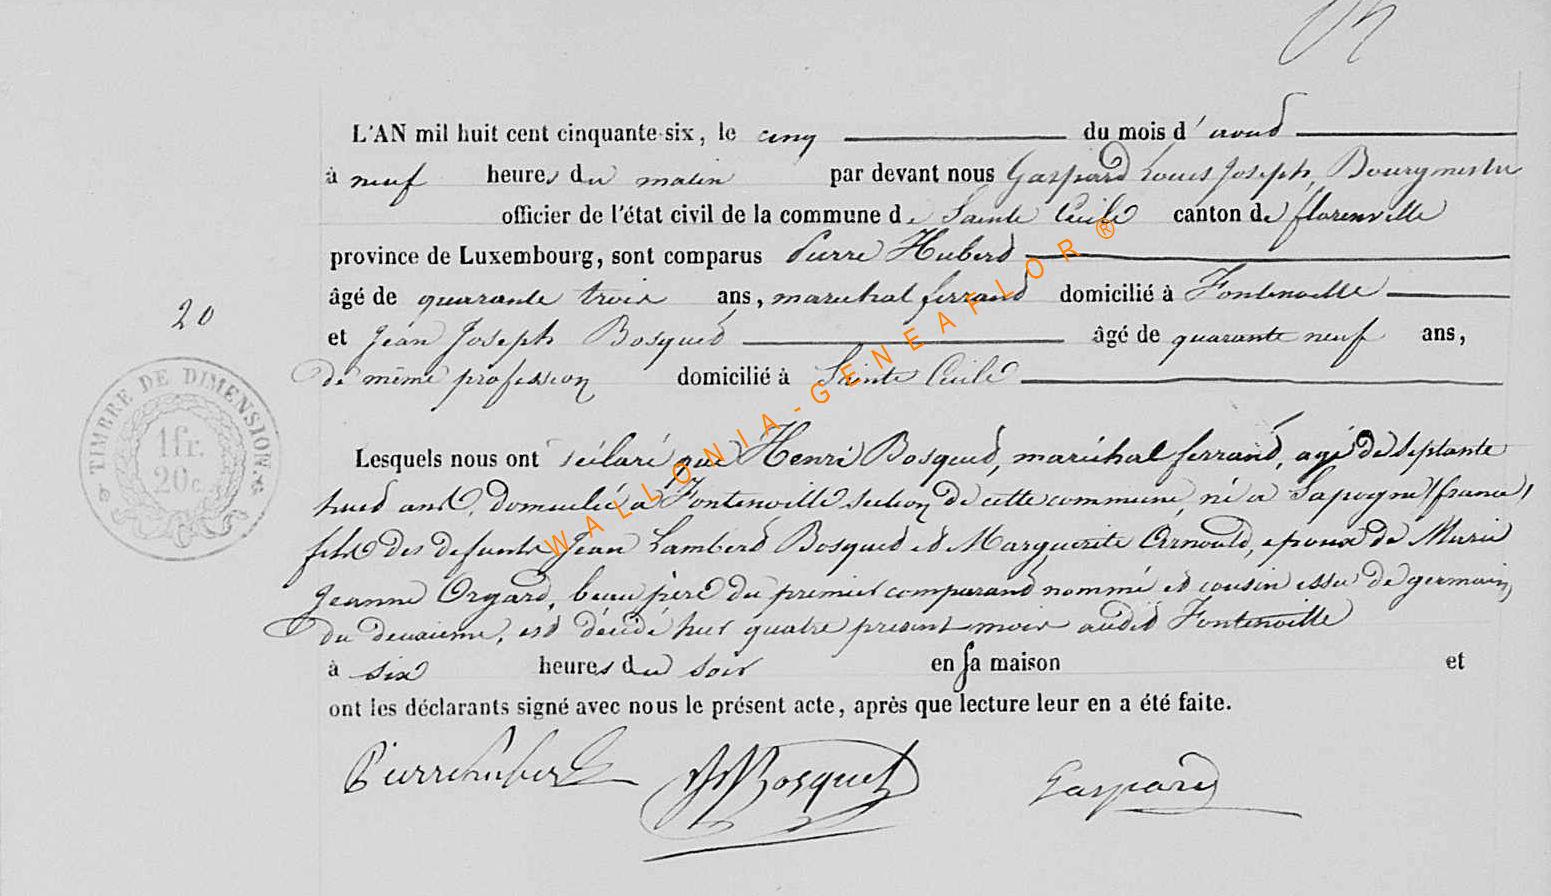 L'AN mil huit cent cinquante-six, le cinq du mois d'aoud
à neuf heures du matin par devant nous Gaspard Louis Joseph, Bourgmestre
officier de l'état civil de la commune de Sainte Cécile canton de florenville
province de Luxembourg, sont comparus Pierre Huberd
âgé de quarante trois ans, maréchal ferrand domicilié à Fontenoille
20
et Jean Joseph Bosqued âgé de quarante neuf ans,
de même profession domicilié à Sainte Cécile
TIMBRE DE DIMENSION
1 fr.
20 c.
Lesquels nous ont déclaré que Henri Bosqued, maréchal ferrand, agé de septante
huid ans, domicilié à Fontenoille section de cette commune, né à Sapogne (france)
fils des defunts Jean Lamberd Bosqued ed Marguerite Arnould, epoux de Marie
Jeanne Orgard, beau père du premier comparand nommé ed cousin issu de germain
du deuxieme, esd décédé hier quatre présent mois audid Fontenoille
à six heures du soir en sa maison et
ont les déclarants signé avec nous le présent acte, après que lecture leur en a été faite.
Pierre huberd JJBosquet Gaspard
WALLONIA-GENEAFLOR®